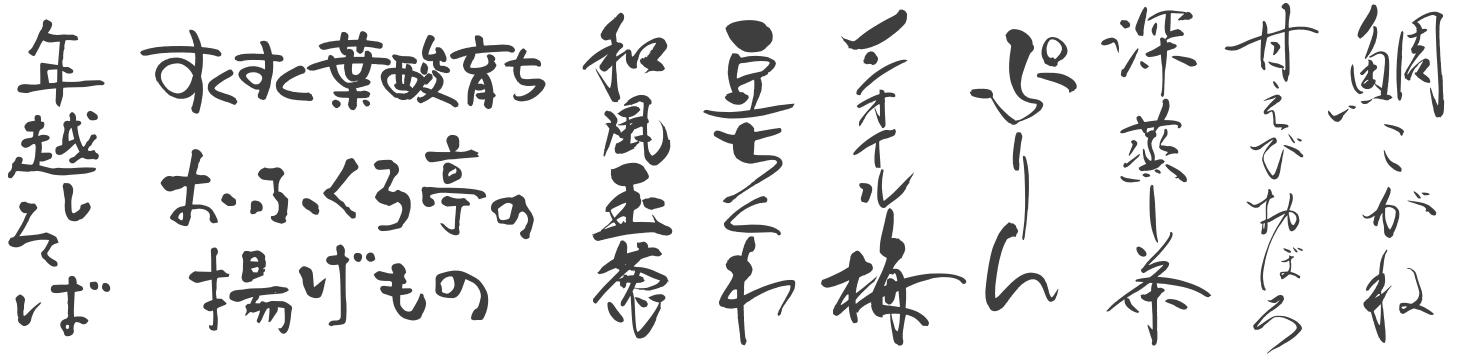 鯛こがね
甘えびおぼろ
深蒸し茶
ぷりん
ノンオイル梅
豆ちくわ
和風玉葱
すくすく葉酸育ち
おふくろ亭の
揚げもの
年越しそば